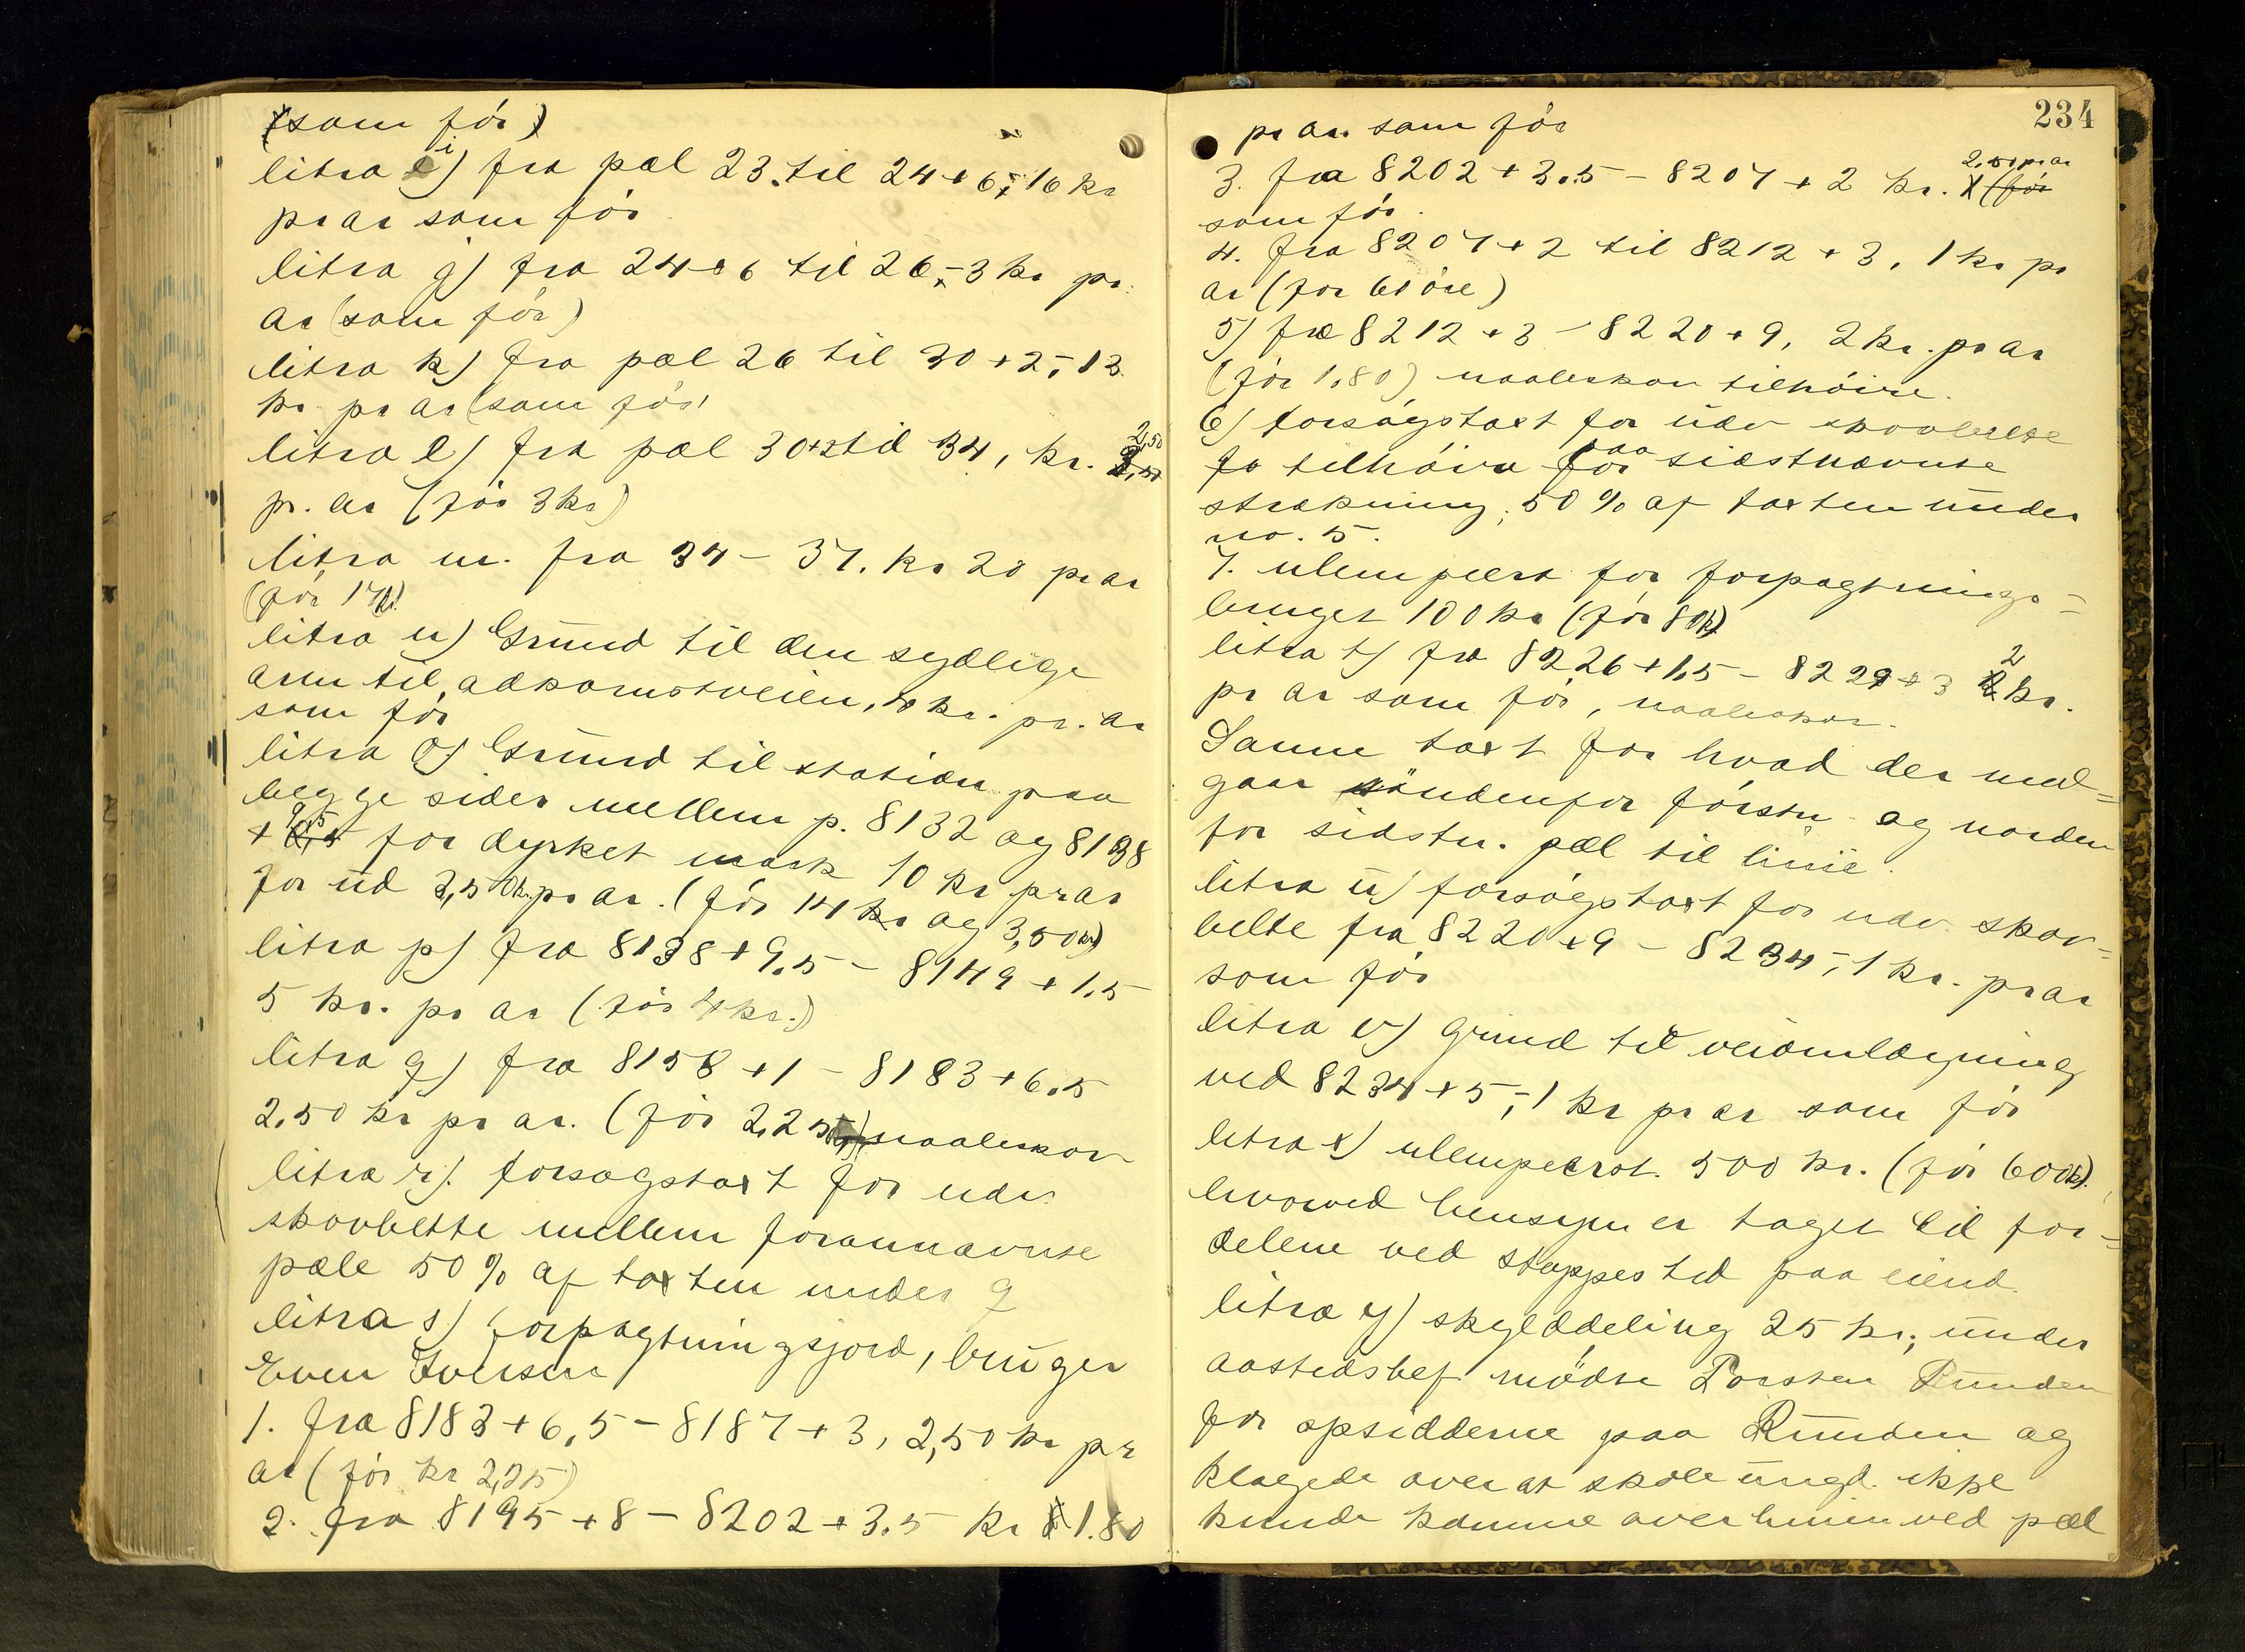 (som før)
litra i) fra pæl 23. til 24+6,- 16 kr
pr ar som før
litra j) fra 24+6 til 26,- 3 kr pr.
ar (som før)
litra k) fra pæl 26 til 30+2,- 13
kr pr ar (som før)
litra l) fra pæl 30+2 til 34, kr. 2,50
pr. ar (før 3 kr)
litra m. fra 34 - 37. kr 20 pr ar
(før 17 kr)
litra n) Grund til den sydlige
arm til adkomstveien, kr. pr. ar
som før
litra o) Grund til station paa
begge sider mellem p. 8132 og 8138
+ 9,5 for dyrket mark 10 kr pr ar
for ud 2,50 kr. pr ar. (før 14 kr og 3,50 kr)
litra p) fra 8138+9.5 - 8149+1.5
5 kr. pr ar (før 4 kr.)
litra q) fra 8158+1 - 8183+6.5
2.50 kr pr ar. (før 2,25 kr) naaleskov
litra r). forsøgstaxt for udv.
skovbelte mellem forannævnte
pæle 50% af taxten under q
litra s) forpagtningsjord, bruger
Even Iversen
1. fra 8183+6,5 - 8187+3, 2,50 kr pr
ar (før kr 2,25)
2. fra 8195+8 - 8202+3.5 kr 1.80
234
pr ar. som før
3. fra 8202+3.5 - 8207+2 kr. 2,50 pr ar (før
som før.
4. fra 8207+2 til 8212+3, 1 kr pr
ar (før 60 øre)
5) fra 8212+3 - 8220+9, 2 kr. pr ar
(før 1,80) naaleskov tilhøire.
6) forsøgstaxt for udv skovbelte
tilhøire paa sidstnævnte
strækning, 50% af taxten under
no. 5.
7. ulemperst for forpagtnings-
bruget 100 kr (før 80 kr)
litra t) fra 8226+1,5 - 8229+3 2 kr.
pr ar som før, naaleskov.
Samme taxt for hvad der med-
gaar søndenfor førstn. og norden
for sidstn. pæl til linie.
litra u) forsøgstaxt for udv. skov-
belte fra 8220+9 - 8234,- 1 kr. pr ar
som før
litra v) grund til veiomlægning
ved 8234+5,- 1 kr pr ar som før
litra x) ulemperst. 500 kr. (før 600 kr).
hvorved hensyn er taget til for-
delene ved stoppested paa eiend.
litra y) skylddeling 25 kr; under
aastedsbef. mødte Torsten Runden
for opsidderne paa Runden og
klagede over at skoleungd. ikke
kunde komme over linien ved pæl